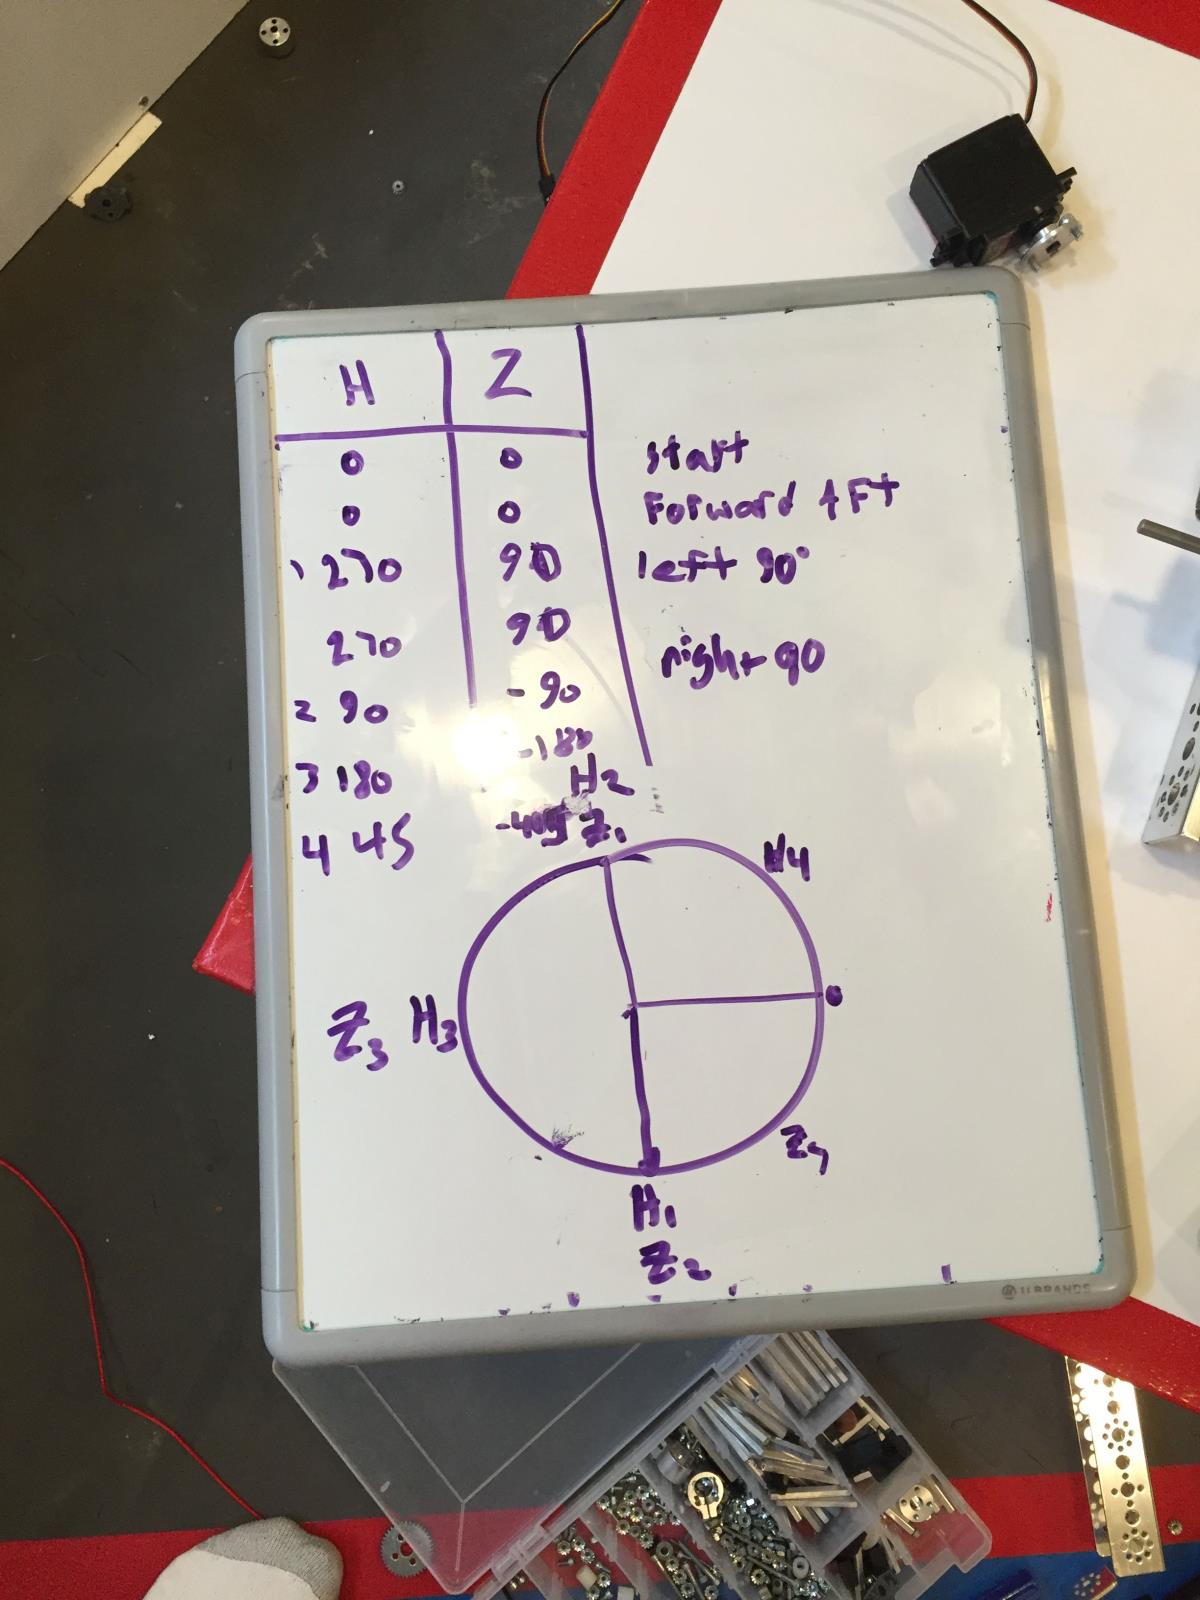 H Z
0 0 start
0 0 Forward 4 Ft
1 270 90 left 90°
270 90 right 90
2 90 -90
3 180 -180
H2
4 45 -45 Z1
H4
0
Z3 H3
Z4
H1
Z2
U BRANDS